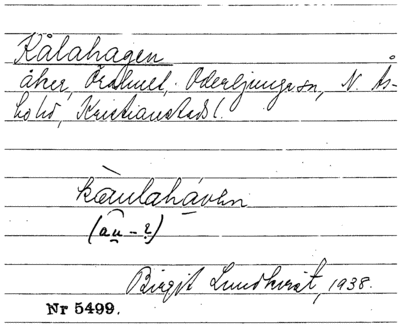 Kålahagen
åker, Örahult, Oderljunga sn, N. Ås-
bo hd, Kristianstads l.
kåulahávėn
(åu - ?)
Birgit Lundkvist, 1938.
Nr 5499.